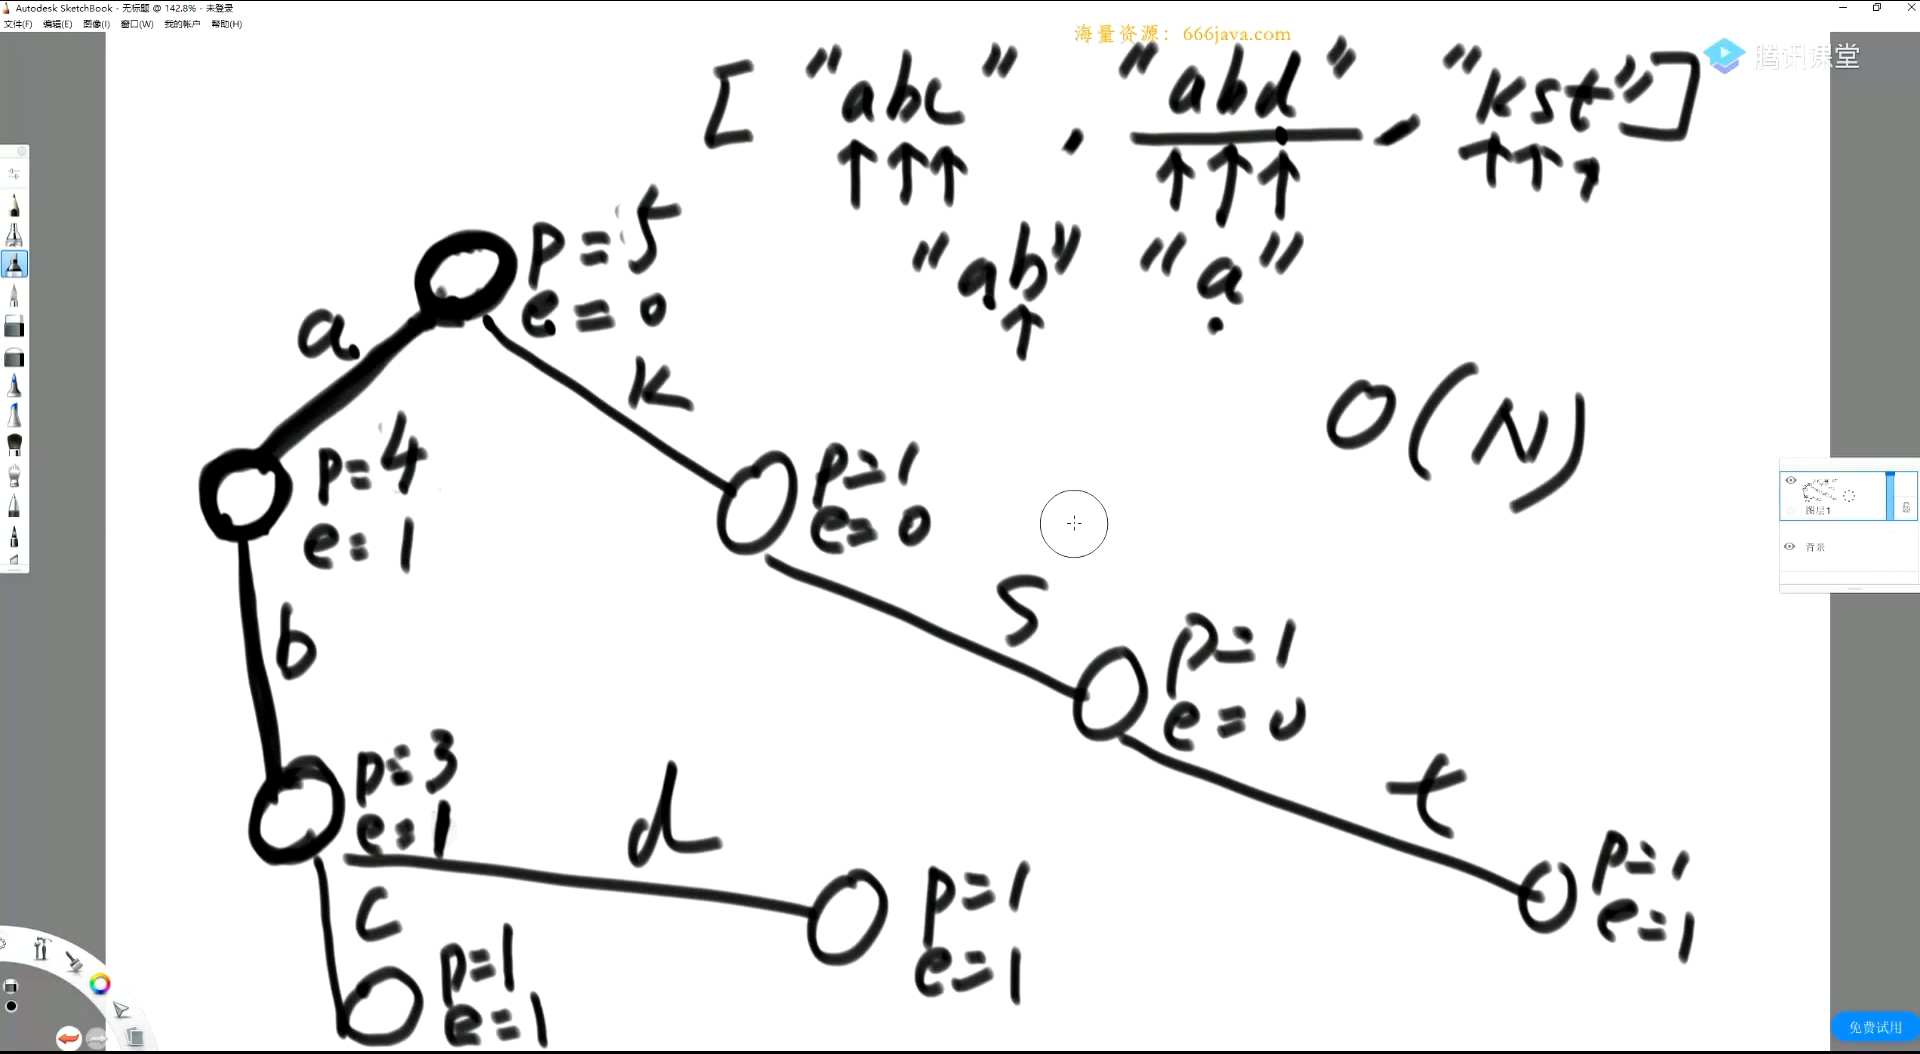 Autodesk SketchBook - 无标题 @ 142.8% - 未登录
文件(F) 编辑(E) 图像(I) 窗口(W) 我的帐户 帮助(H)
海量资源：666java.com
腾讯课堂
["abc", "abd", "kst"]
"ab" "a"
p=5
e=0
a
k
O(N)
p=4
e=1
p=1
e=0
b
s
p=1
e=0
p=3
e=1
d
t
c
p=1
e=1
p=1
e=1
p=1
e=1
图层1
背景
免费试用